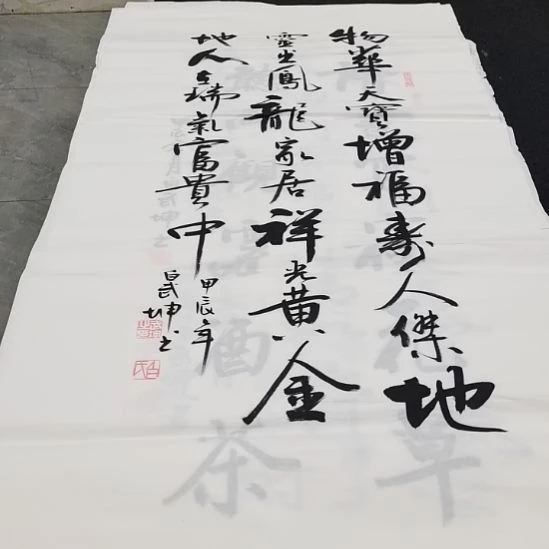 物華天寶增福壽人傑地
靈出鳳龍家居祥光黄金
地人在瑞氣富貴中
甲辰年
武坤书